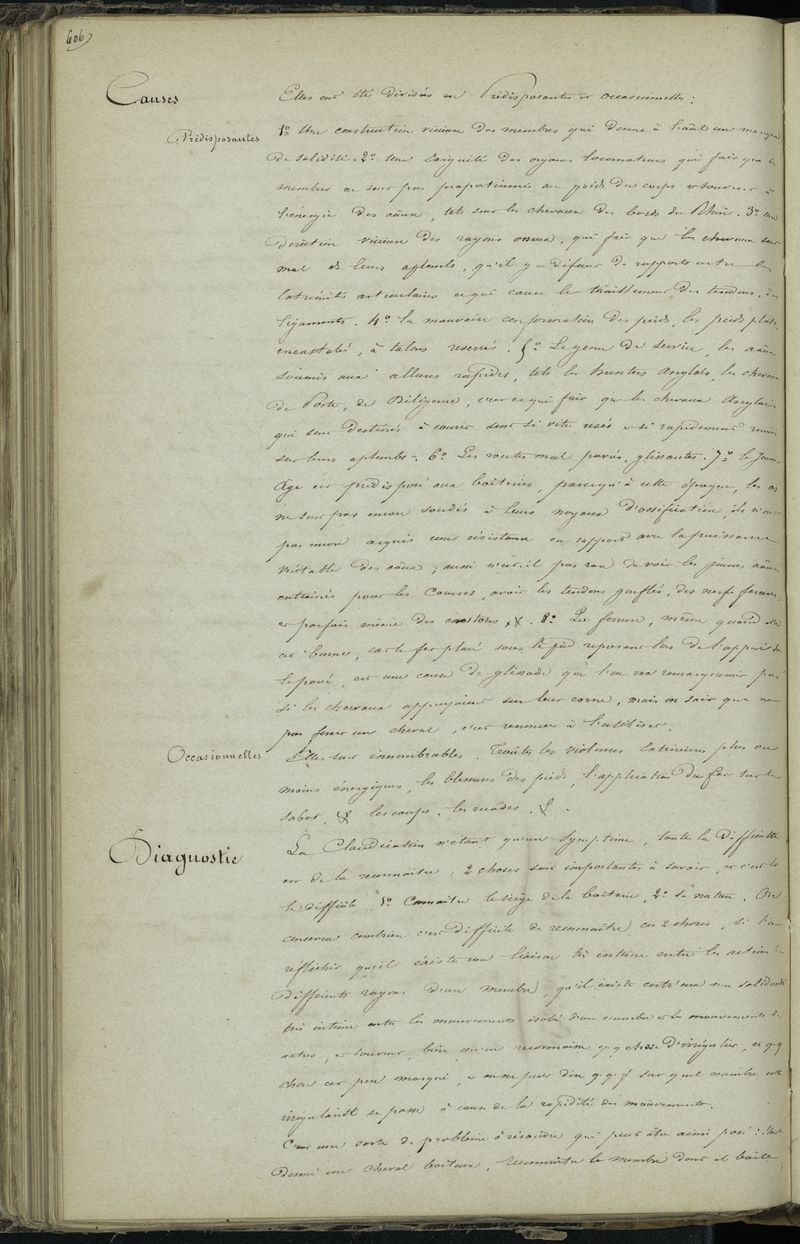 606
Causes
Elles ont été divisées en Prédisposantes et occasionnelles :
Prédisposantes
1º Une construction vicieuse des membres qui donne à l'aâl un manque
de solidité. 2º une exiguité des organes locomoteurs qui fait que les
membres ne sont pas proportionnés au poids du corps et souvent à
l'énergie des aâux, tels sont les chevaux des bords du Rhin. 3º une
direction vicieuse des rayons osseux, qui fait que les chevaux sont
mal de leurs aplombs, qu'il y a défaut de rapports entre les
extrémités articulaires et qui cause le tiraillement des tendons, des
ligaments. 4º la mauvaise conformation des pieds, les pieds plats,
encastelé, à talons resserrés. 5º Le genre de service, les aâux
soumis aux allures rapides, tels les hunters anglais, les chevaux
de Poste, de Diligence, c'est ce qui fait que les chevaux Anglais
qui sont destinés à courir sont si vite usés et si rapidement ruinés
sur leurs aplombs. 6º Les routes mal pavés, glissantes. 7º le jeune
âge est prédisposé aux boiteries, parcequ'à cette époque, les os
ne sont pas encore soudés à leurs noyaux d'ossification, ils n'ont
pas encore acquis une résistance en rapport avec la puissance
véritable des aâux ; aussi n'est-il pas rare de voir les jeunes aâux
entrainés pour les courses, avoir les tendons gonflés, des nerfs ferrures,
et parfois même des exostoses, &. 8º La ferrure, même quand elle
est bonne, car le fer placé sous le pied reposant lors de l'appui sur
le pavé, est une cause de glissade que l'on ne remarquerait pas
si les chevaux appuyaient sur leur corne, mais on sait que ne
pas ferrer un cheval, c'est renoncer à l'utiliser.
Occasionnelles
Elles sont innombrables. Toutes les violences extérieures plus ou
moins énergiques, les blessures des pieds, l'application du fer sur le
sabot, & les coups, les ruades, &.
Diagnostic
La Claudication n'étant qu'un symptôme, toute la difficulté
est de la reconnaître : 2 choses sont importantes à savoir, et c'est là
le difficile, 1º Connaître le siège de la boiterie, 2º sa nature. On
concevra combien c'est difficile de reconnaître ces 2 choses, si l'on
réfléchit qu'il existe une liaison très intime entre les actions des
différents rayons d'un membre, qu'il existe entr'eux une solidarité
très intime entre les mouvements isolé d'un membre et les mouvements des
autres, et souvent, bien qu'on reconnaisse qq chose d'irrégulier, ce qq
chose est peu marqué, et on ne peut dire qq f sur quel membre cette
irrégularité se passe à cause de la rapidité des mouvements.
C'est une sorte de problème à résoudre qui peut être ainsi posé : Etant
donné un cheval boiteux, reconnaître le membre dont il boite,